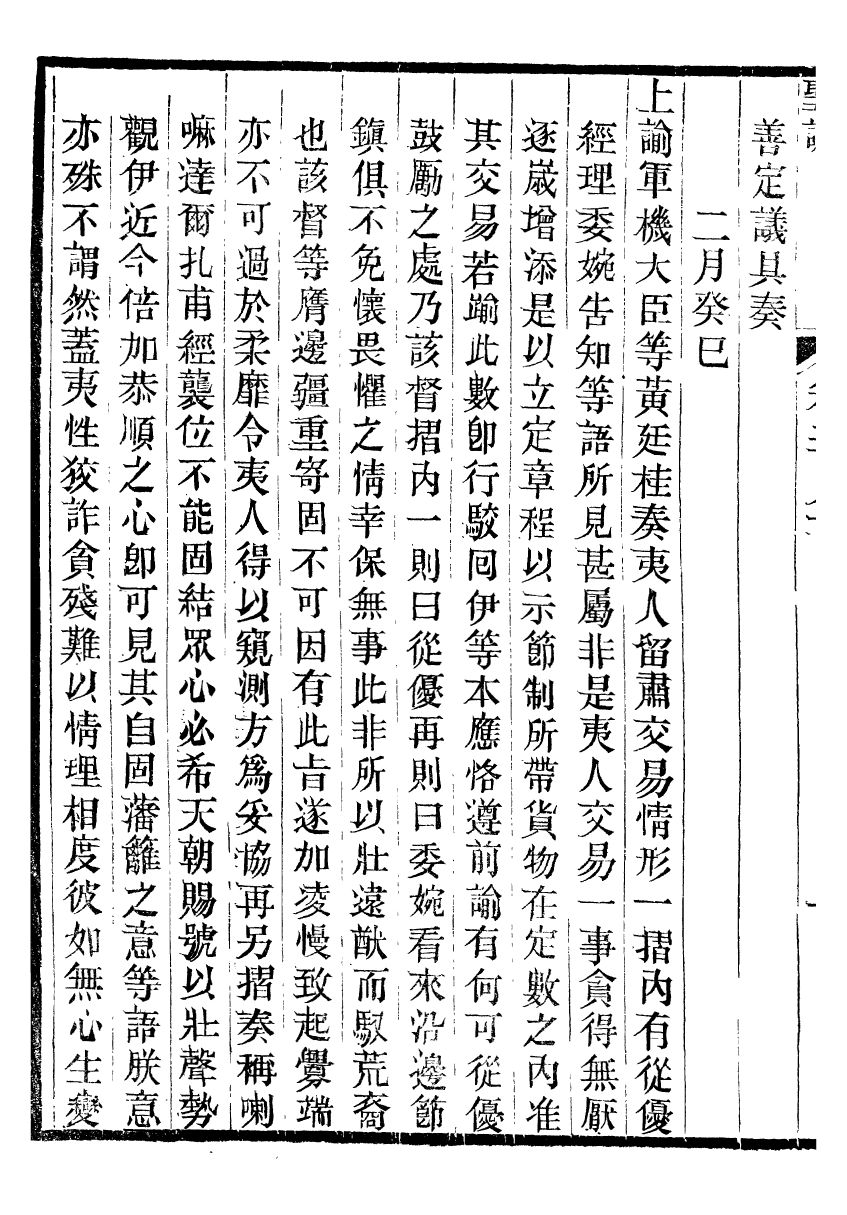 善定議具奏
二月癸巳
上諭軍機大臣等黃廷桂奏夷人留肅交易情形一摺內有從優
經理委婉告知等語所見甚屬非是夷人交易一事貪得無厭
逐嵗增添是以立定章程以示節制所帶貨物在定數之內准
其交易若踰此數卽行駁回伊等本應恪遵前諭有何可從優
鼓勵之處乃該督摺內一則曰從優再則曰委婉看來沿邊節
鎮俱不免懷畏懼之情幸保無事此非所以壯遠猷而馭荒裔
也該督等膺邊疆重寄固不可因有此㫖遂加凌慢致起釁端
亦不可過於柔靡令夷人得以窺測方爲妥協再另摺奏稱喇
嘛達爾扎甫經襲位不能固結眾心必希天朝賜號以壯聲勢
觀伊近今倍加恭順之心卽可見其自固藩籬之意等語朕意
亦殊不謂然蓋夷性狡詐貪殘難以情理相度彼如無心生變